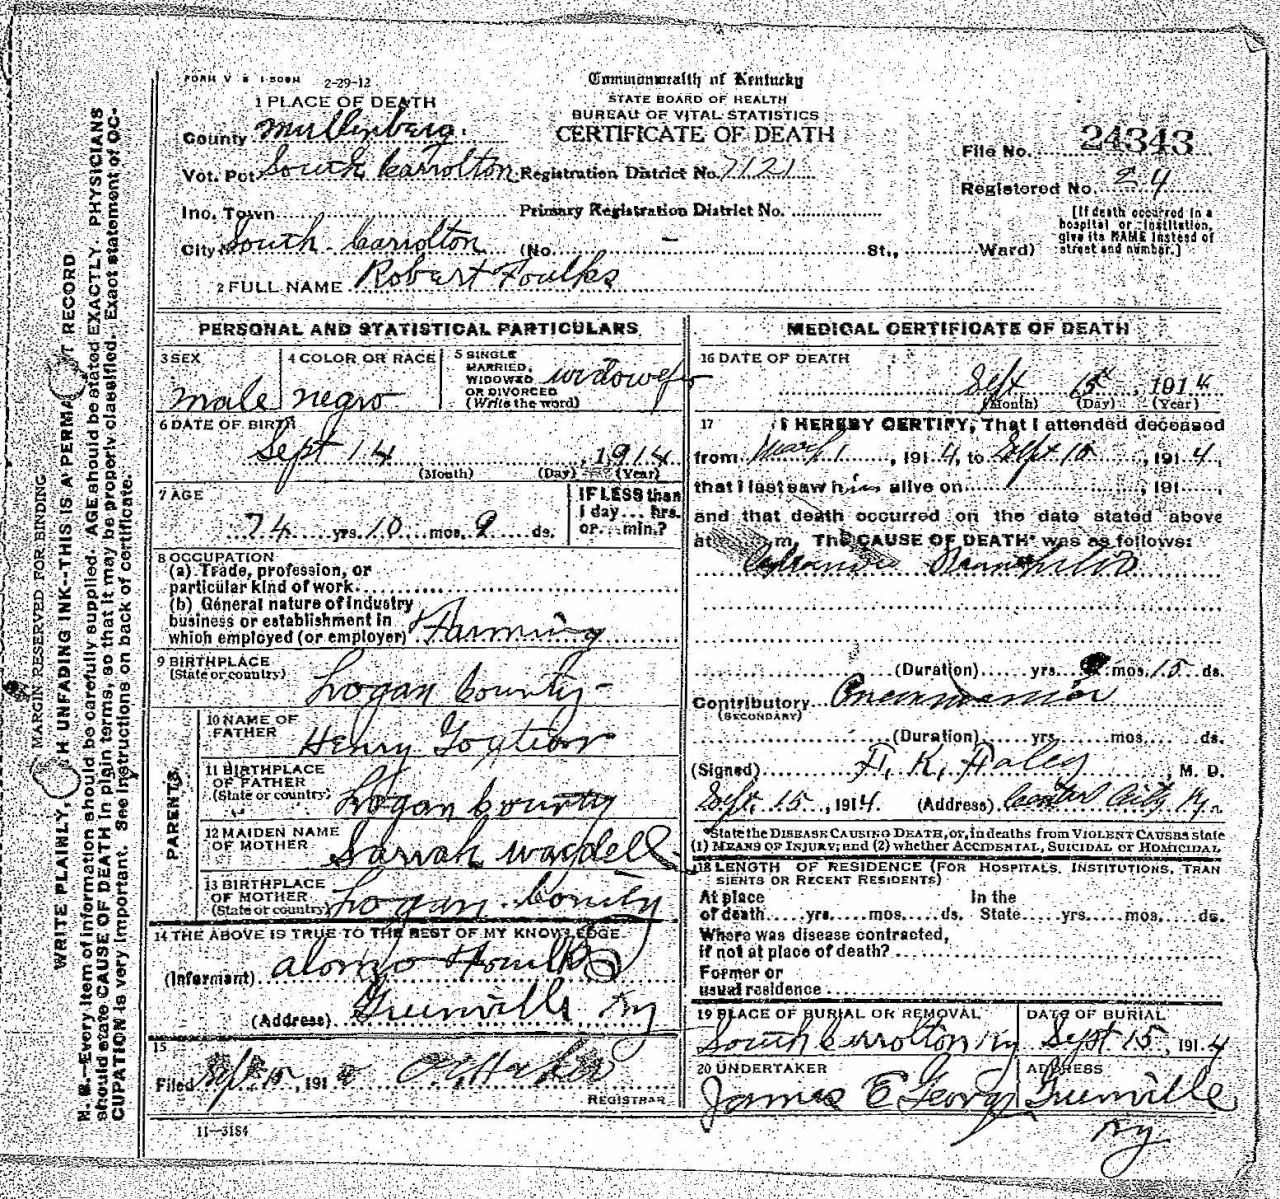 FORM V S 1-500M 2-29-12
Commonwealth of Kentucky
STATE BOARD OF HEALTH
BUREAU OF VITAL STATISTICS
CERTIFICATE OF DEATH
1 PLACE OF DEATH
County Mullenberg.
Vot. Pct South Carrolton Registration District No. 7121
File No. 24343
Registered No. 84
Inc. Town Primary Registration District No.
City South Carrolton (No. - St., Ward)
[If death occurred in a hospital or institution, give its NAME instead of street and number.]
2 FULL NAME Robert Foulks
PERSONAL AND STATISTICAL PARTICULARS
3 SEX male
4 COLOR OR RACE negro
5 SINGLE MARRIED, WIDOWED OR DIVORCED (Write the word) widower
6 DATE OF BIRTH
Sept 14, 1914
(Month) (Day) (Year)
7 AGE
74 yrs. 10 mos. 9 ds.
IF LESS than 1 day... hrs. or... min.?
8 OCCUPATION
(a) Trade, profession, or
particular kind of work
(b) General nature of industry
business or establishment in
which employed (or employer) Farming
9 BIRTHPLACE
(State or country) Logan County-
PARENTS
10 NAME OF FATHER Henry
11 BIRTHPLACE OF FATHER (State or country) Logan County
12 MAIDEN NAME OF MOTHER Sarrah Waddell
13 BIRTHPLACE OF MOTHER (State or country) Logan County
14 THE ABOVE IS TRUE TO THE BEST OF MY KNOWLEDGE
(Informant) alonzo Foulks
(Address) Greenville Ky
15
Filed Sept 15, 191
REGISTRAR
11-3184
MEDICAL CERTIFICATE OF DEATH
16 DATE OF DEATH
Sept 15, 1914
(Month) (Day) (Year)
17 I HEREBY CERTIFY, That I attended deceased
from 1, 1914, to Sept 10, 1914,
that I last saw him alive on, 191
and that death occurred on the date stated above
at m. The CAUSE OF DEATH* was as follows:
(Duration) yrs. mos. 15 ds.
Contributory
(SECONDARY)
(Duration) yrs. mos. ds.
(Signed) , M. D.
Sept. 15, 1914. (Address) Central City Ky.
*State the DISEASE CAUSING DEATH, or, in deaths from VIOLENT CAUSES state
(1) MEANS OF INJURY; and (2) whether ACCIDENTAL, SUICIDAL or HOMICIDAL
18 LENGTH OF RESIDENCE (FOR HOSPITALS, INSTITUTIONS, TRAN
SIENTS OR RECENT RESIDENTS)
At place In the
of death yrs. mos. ds. State yrs. mos. ds.
Where was disease contracted,
if not at place of death?
Former or
usual residence
19 PLACE OF BURIAL OR REMOVAL DATE OF BURIAL
South Carrolton Ky Sept 15, 1914
20 UNDERTAKER ADDRESS
James E Georg Greenville
Ky
MARGIN RESERVED FOR BINDING
WRITE PLAINLY, WITH UNFADING INK--THIS IS A PERMANENT RECORD
N. B.-Every item of information should be carefully supplied. AGE should be stated EXACTLY. PHYSICIANS
should state CAUSE OF DEATH in plain terms, so that it may be properly classified. Exact statement of OC-
CUPATION is very important. See instructions on back of certificate.